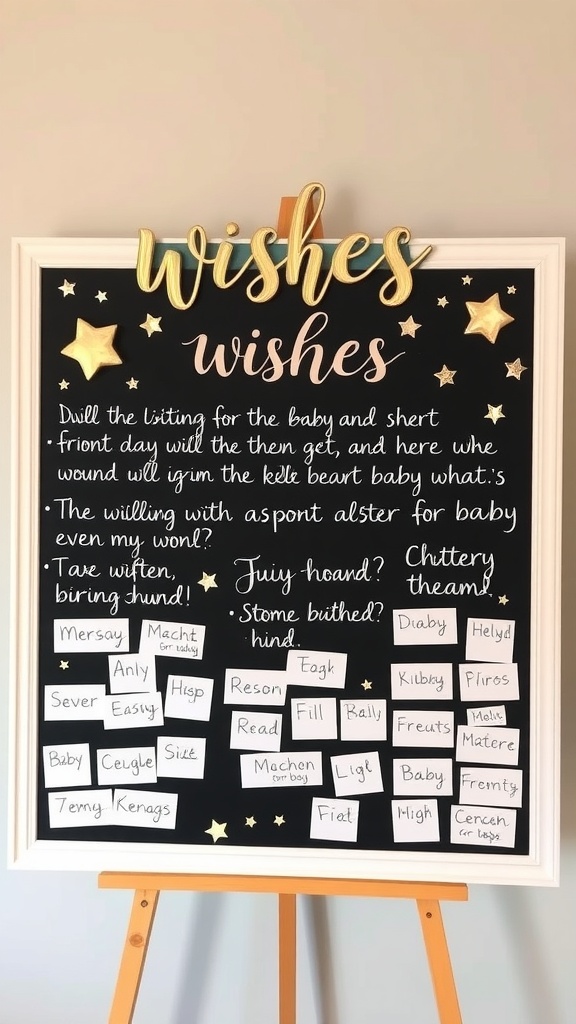 wishes
wishes
Dwill the listing for the baby and shert
• friont day will the then get, and here whe
wound will the beart baby what:s
• The willing with aspont alster for baby
even my wonl?
• Taxe wiften,
biring hund!
Juiy hoand?
• Stome buthed?
hind.
Chittery
theams
Mersay
Macht
for baby
Anly
Sever
Easivy
Hisp
Baby
Ceugle
Site
Temy
Kenags
Eagk
Reson
Fill
Bally
Read
Machen
for boy
Ligl
Fiat
Diaby
Helyd
Kilbky
Firos
Freuts
Matere
Baby
Fremty
High
Cencen